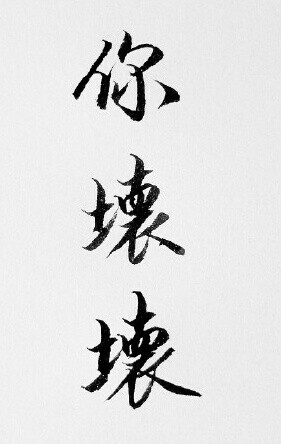 你壞壞